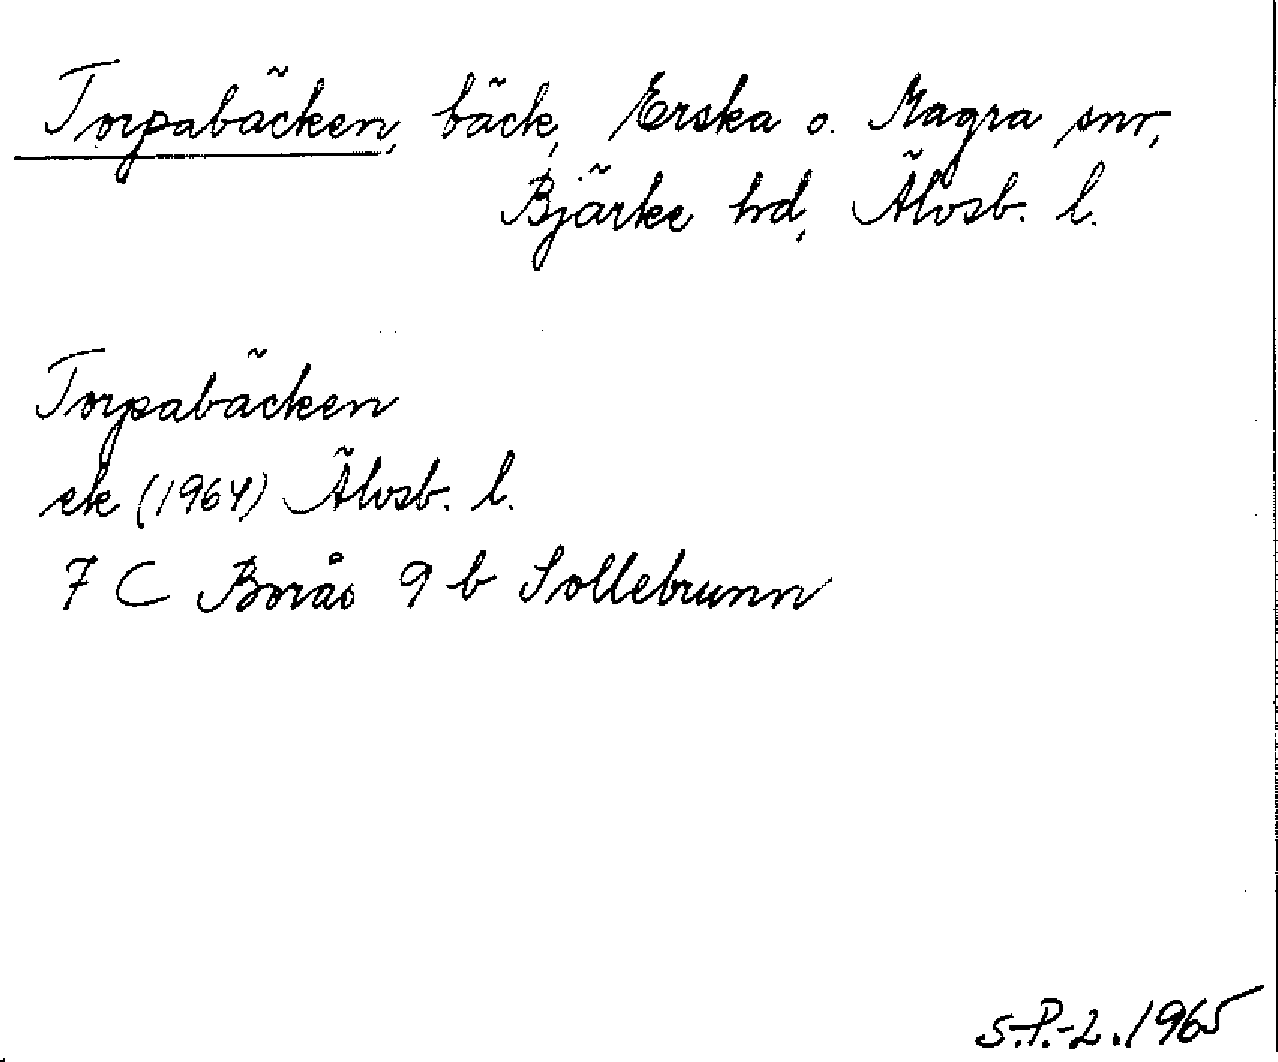 Torpabäcken, bäck, Erska o. Magra snr,
Bjärke hd, Älvsb. l.
Torpabäcken
ek (1964) Älvsb. l.
7 C Borås 9 b Sollebrunn
S.P.-L. 1965